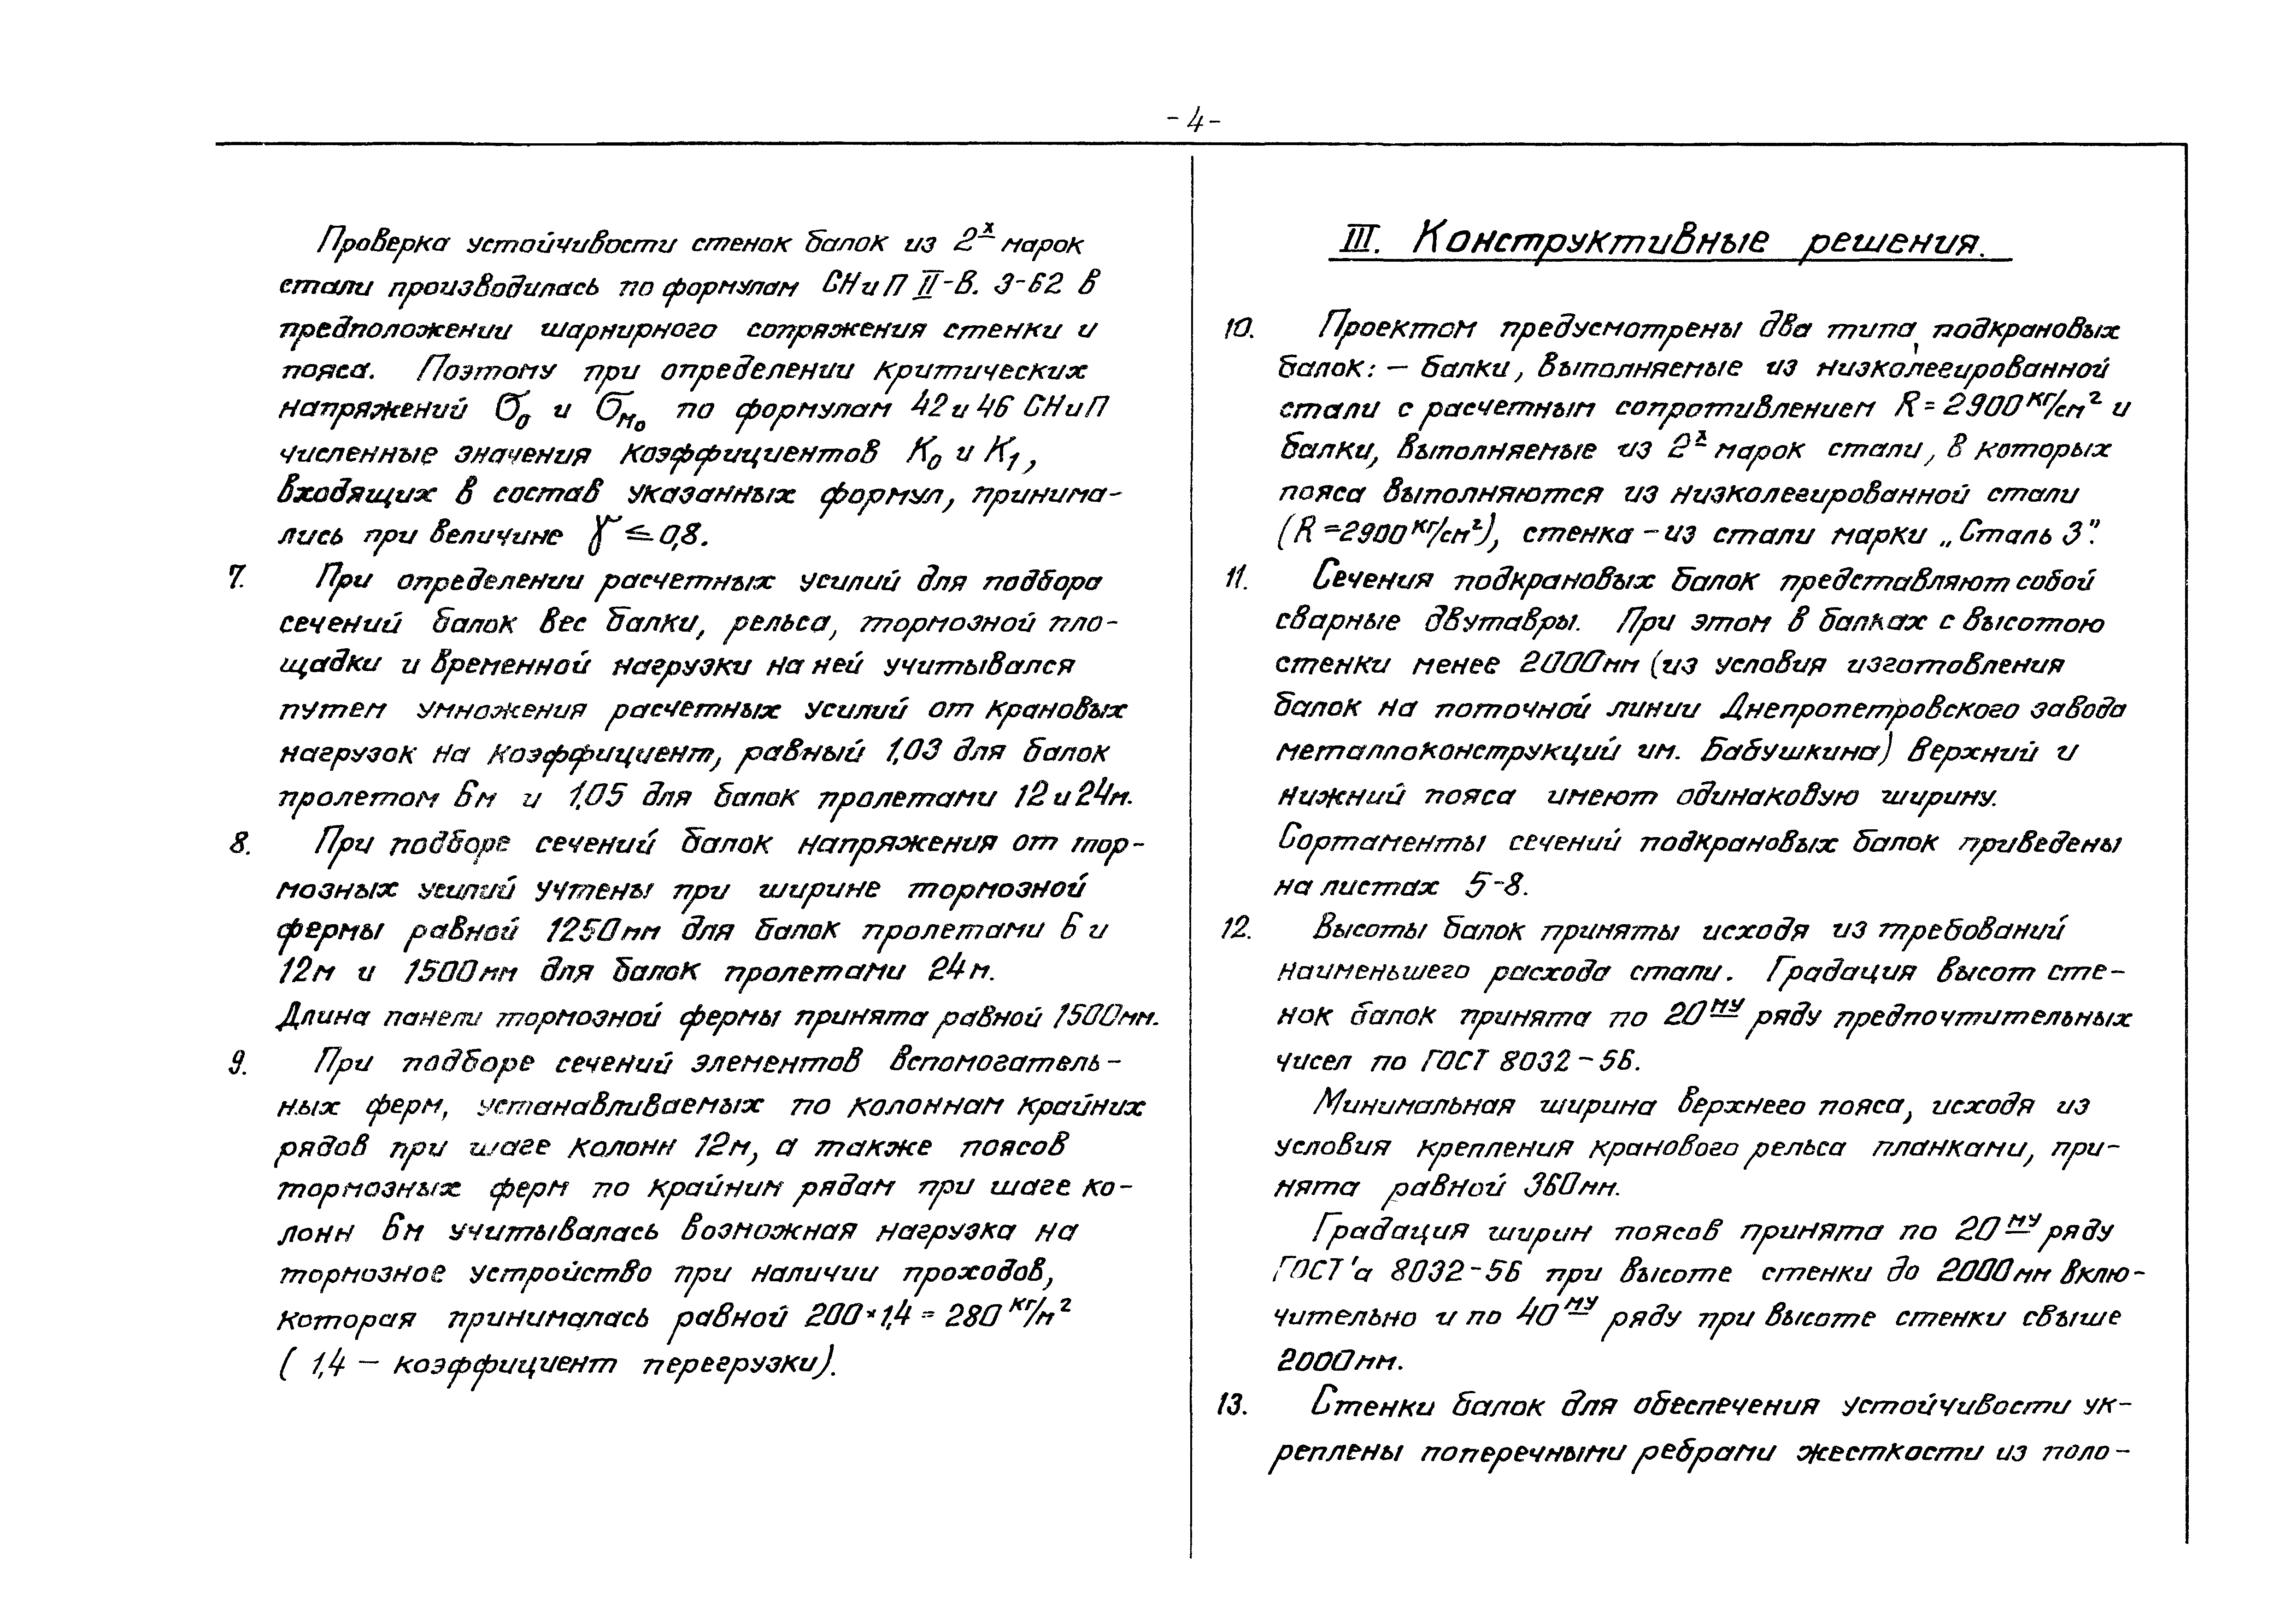 - 4 -
Проверка устойчивости стенок балок из 2х марок
стали производилась по формулам СНиП II-В. 3-62 в
предположении шарнирного сопряжения стенки и
пояса. Поэтому при определении критических
напряжений σ₀ и σм₀ по формулам 42 и 46 СНиП
численные значения коэффициентов К₀ и К₁,
входящих в состав указанных формул, принима-
лись при величине γ ≤ 0,8.
7. При определении расчетных усилий для подбора
сечений балок вес балки, рельса, тормозной пло-
щадки и временной нагрузки на ней учитывался
путем умножения расчетных усилий от крановых
нагрузок на коэффициент, равный 1,03 для балок
пролетом 6м и 1,05 для балок пролетами 12 и 24м.
8. При подборе сечений балок напряжения от тор-
мозных усилий учтены при ширине тормозной
фермы равной 1250мм для балок пролетами 6 и
12м и 1500мм для балок пролетами 24м.
Длина панели тормозной фермы принята равной 1500мм.
9. При подборе сечений элементов вспомогатель-
ных ферм, устанавливаемых по колоннам крайних
рядов при шаге колонн 12м, а также поясов
тормозных ферм по крайним рядам при шаге ко-
лонн 6м учитывалась возможная нагрузка на
тормозное устройство при наличии проходов,
которая принималась равной 200×1,4 = 280 кг/м²
( 1,4 — коэффициент перегрузки).
III. Конструктивные решения.
10. Проектом предусмотрены два типа подкрановых
балок: — балки, выполняемые из низколегированной
стали с расчетным сопротивлением R = 2900 кг/см² и
балки, выполняемые из 2х марок стали, в которых
пояса выполняются из низколегированной стали
(R =2900 кг/см²), стенка - из стали марки „Сталь 3".
11. Сечения подкрановых балок представляют собой
сварные двутавры. При этом в балках с высотою
стенки менее 2000мм (из условия изготовления
балок на поточной линии Днепропетровского завода
металлоконструкций им. Бабушкина) верхний и
нижний пояса имеют одинаковую ширину.
Сортаменты сечений подкрановых балок приведены
на листах 5-8.
12. Высоты балок приняты исходя из требований
наименьшего расхода стали. Градация высот сте-
нок балок принята по 20му ряду предпочтительных
чисел по ГОСТ 8032-56.
Минимальная ширина верхнего пояса, исходя из
условия крепления кранового рельса планками, при-
нята равной 360мм.
Градация ширин поясов принята по 20му ряду
ГОСТ'а 8032-56 при высоте стенки до 2000мм вклю-
чительно и по 40му ряду при высоте стенки свыше
2000мм.
13. Стенки балок для обеспечения устойчивости ук-
реплены поперечными ребрами жесткости из поло-